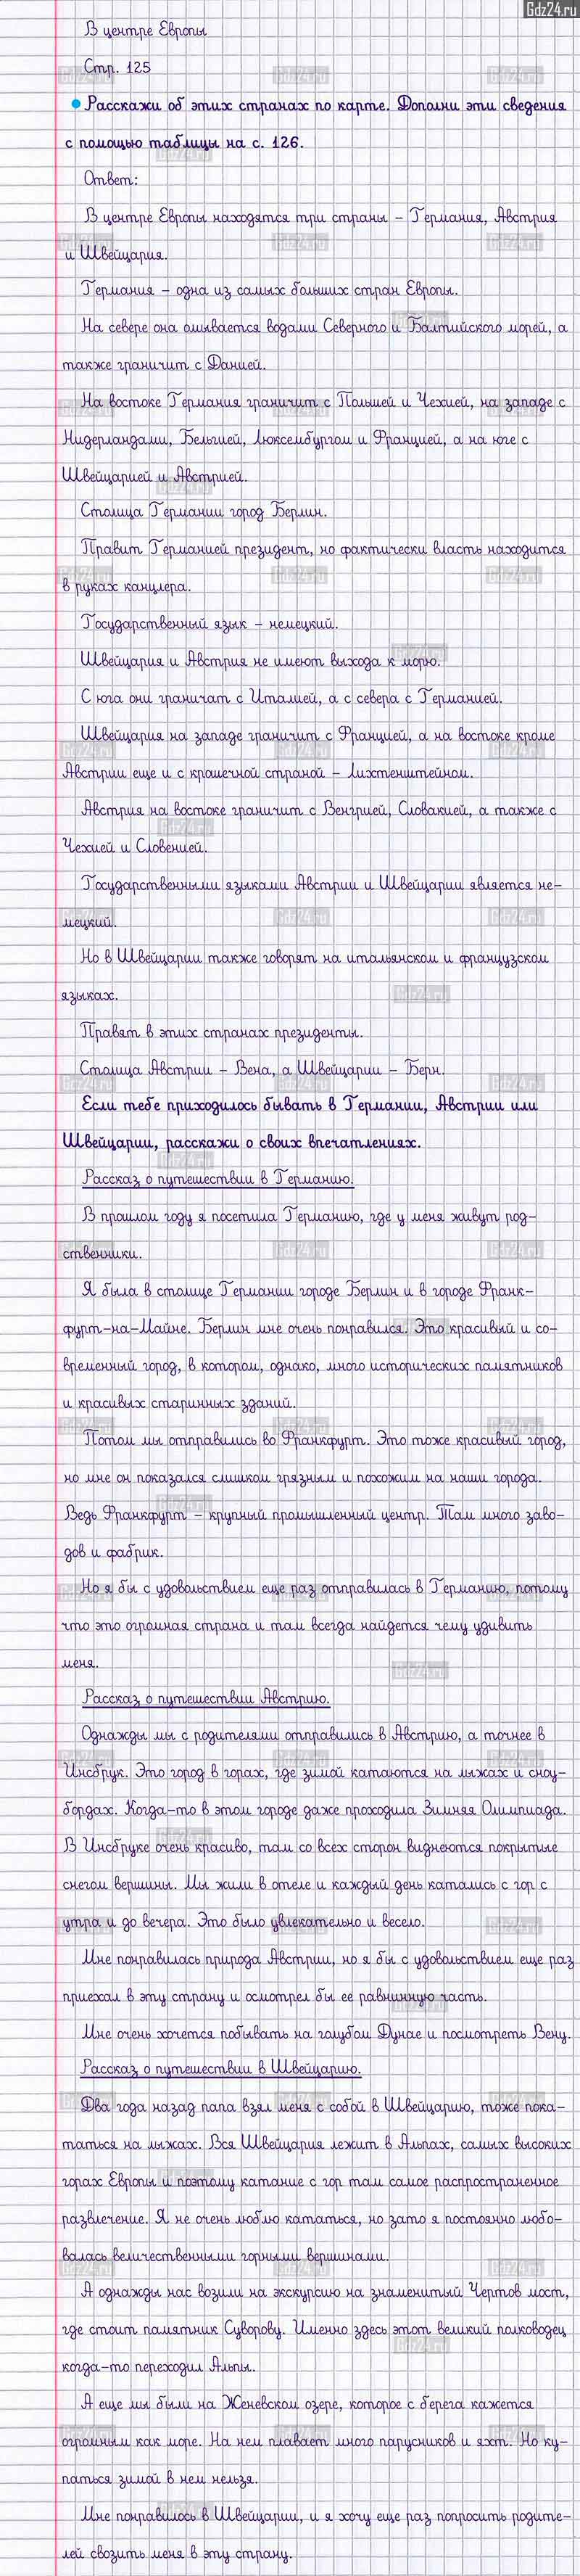 Gdz24.ru
В центре Европы
Стр. 125
Расскажи об этих странах по карте. Дополни эти сведения
с помощью таблицы на с. 126.
Ответ:
В центре Европы находятся три страны – Германия, Австрия
и Швейцария.
Германия – одна из самых больших стран Европы.
На севере она омывается водами Северного и Балтийского морей, а
также граничит с Данией.
На востоке Германия граничит с Польшей и Чехией, на западе с
Нидерландами, Бельгией, Люксембургом и Францией, а на юге с
Швейцарией и Австрией.
Столица Германии город Берлин.
Правит Германией президент, но фактически власть находится
в руках канцлера.
Государственный язык – немецкий.
Швейцария и Австрия не имеют выхода к морю.
С юга они граничат с Италией, а с севера с Германией.
Швейцария на западе граничит с Францией, а на востоке кроме
Австрии еще и с крошечной страной – Лихтенштейном.
Австрия на востоке граничит с Венгрией, Словакией, а также с
Чехией и Словенией.
Государственными языками Австрии и Швейцарии является не-
мецкий.
Но в Швейцарии также говорят на итальянском и французском
языках.
Правят в этих странах президенты.
Столица Австрии – Вена, а Швейцарии – Берн.
Если тебе приходилось бывать в Германии, Австрии или
Швейцарии, расскажи о своих впечатлениях.
Рассказ о путешествии в Германию.
В прошлом году я посетила Германию, где у меня живут род-
ственники.
Я была в столице Германии городе Берлин и в городе Франк-
фурт-на-Майне. Берлин мне очень понравился. Это красивый и со-
временный город, в котором, однако, много исторических памятников
и красивых старинных зданий.
Потом мы отправились во Франкфурт. Это тоже красивый город,
но мне он показался слишком грязным и похожим на наши города.
Ведь Франкфурт – крупный промышленный центр. Там много заво-
дов и фабрик.
Но я бы с удовольствием еще раз отправилась в Германию, потому
что это огромная страна и там всегда найдется чему удивить
меня.
Рассказ о путешествии Австрию.
Однажды мы с родителями отправились в Австрию, а точнее в
Инсбрук. Это город в горах, где зимой катаются на лыжах и сноу-
бордах. Когда-то в этом городе даже проходила Зимняя Олимпиада.
В Инсбруке очень красиво, там со всех сторон виднеются покрытые
снегом вершины. Мы жили в отеле и каждый день катались с гор с
утра и до вечера. Это было увлекательно и весело.
Мне понравилась природа Австрии, но я бы с удовольствием еще раз
приехал в эту страну и осмотрел бы ее равнинную часть.
Мне очень хочется побывать на голубом Дунае и посмотреть Вену.
Рассказ о путешествии в Швейцарию.
Два года назад папа взял меня с собой в Швейцарию, тоже пока-
таться на лыжах. Вся Швейцария лежит в Альпах, самых высоких
горах Европы и поэтому катание с гор там самое распространенное
развлечение. Я не очень люблю кататься, но зато я постоянно любо-
валась величественными горными вершинами.
А однажды нас возили на экскурсию на знаменитый Чертов мост,
где стоит памятник Суворову. Именно здесь этот великий полководец
когда-то переходил Альпы.
А еще мы были на Женевском озере, которое с берега кажется
огромным как море. На нем плавает много парусников и яхт. Но ку-
паться зимой в нем нельзя.
Мне понравилось в Швейцарии, и я хочу еще раз попросить родите-
лей свозить меня в эту страну.